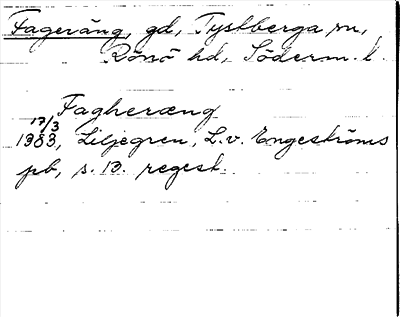 Fageräng, gd, Tystberga sn,
Rönö hd, Söderm. l.
Fagheræng
17/3
1383, Liljegren, L. v. Engeströms
pb, s. 13. regest.